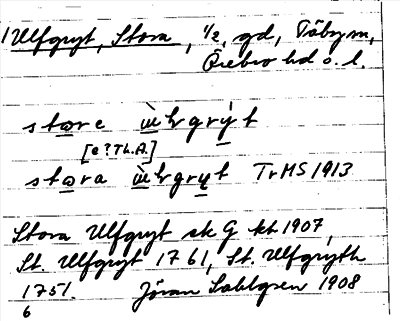 Ulfgryt, Stora, 1/2, gd, Täby sn,
Örebro hd o. l.
store ẁlvgrýt
[e? Th.A.]
stora ẁlvgryt TrMS 1913
Stora Ulfgryt sk G kt 1907,
St. Ulfgryt 1761, St. Ulfgryth
1751. Jöran Sahlgren 1908
6